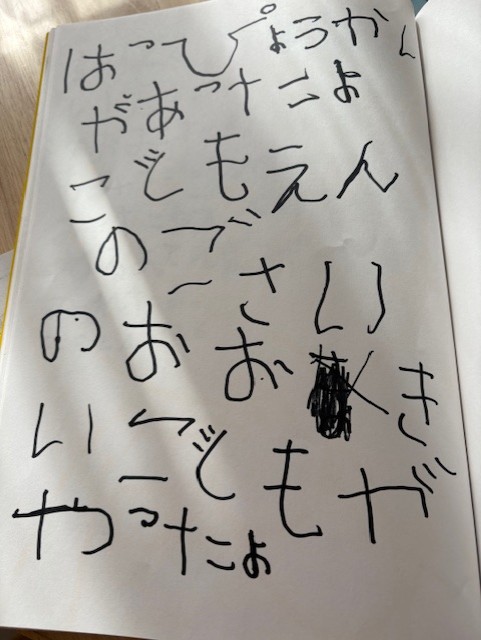 はっぴょうかい
があったよ
こどもえん
のご
さい
のおおき
いこどもが
やったよ